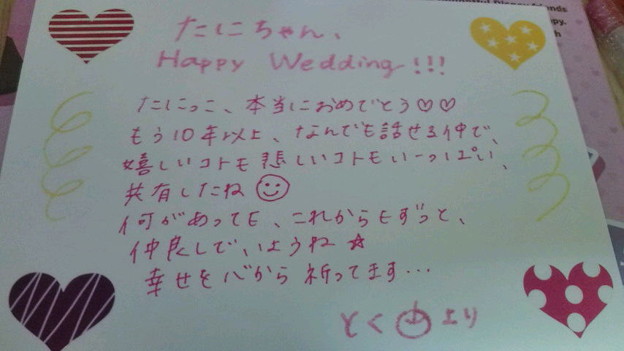 たにちゃん、
Happy Wedding!!!
たにっこ、本当におめでとう♡♡
もう10年以上、なんでも話せる仲で、
嬉しいコトも悲しいコトもいーっぱい、
共有したね☺
何があっても、これからもずっと、
仲良しでいようね☆
幸せを心から祈ってます…
とくより